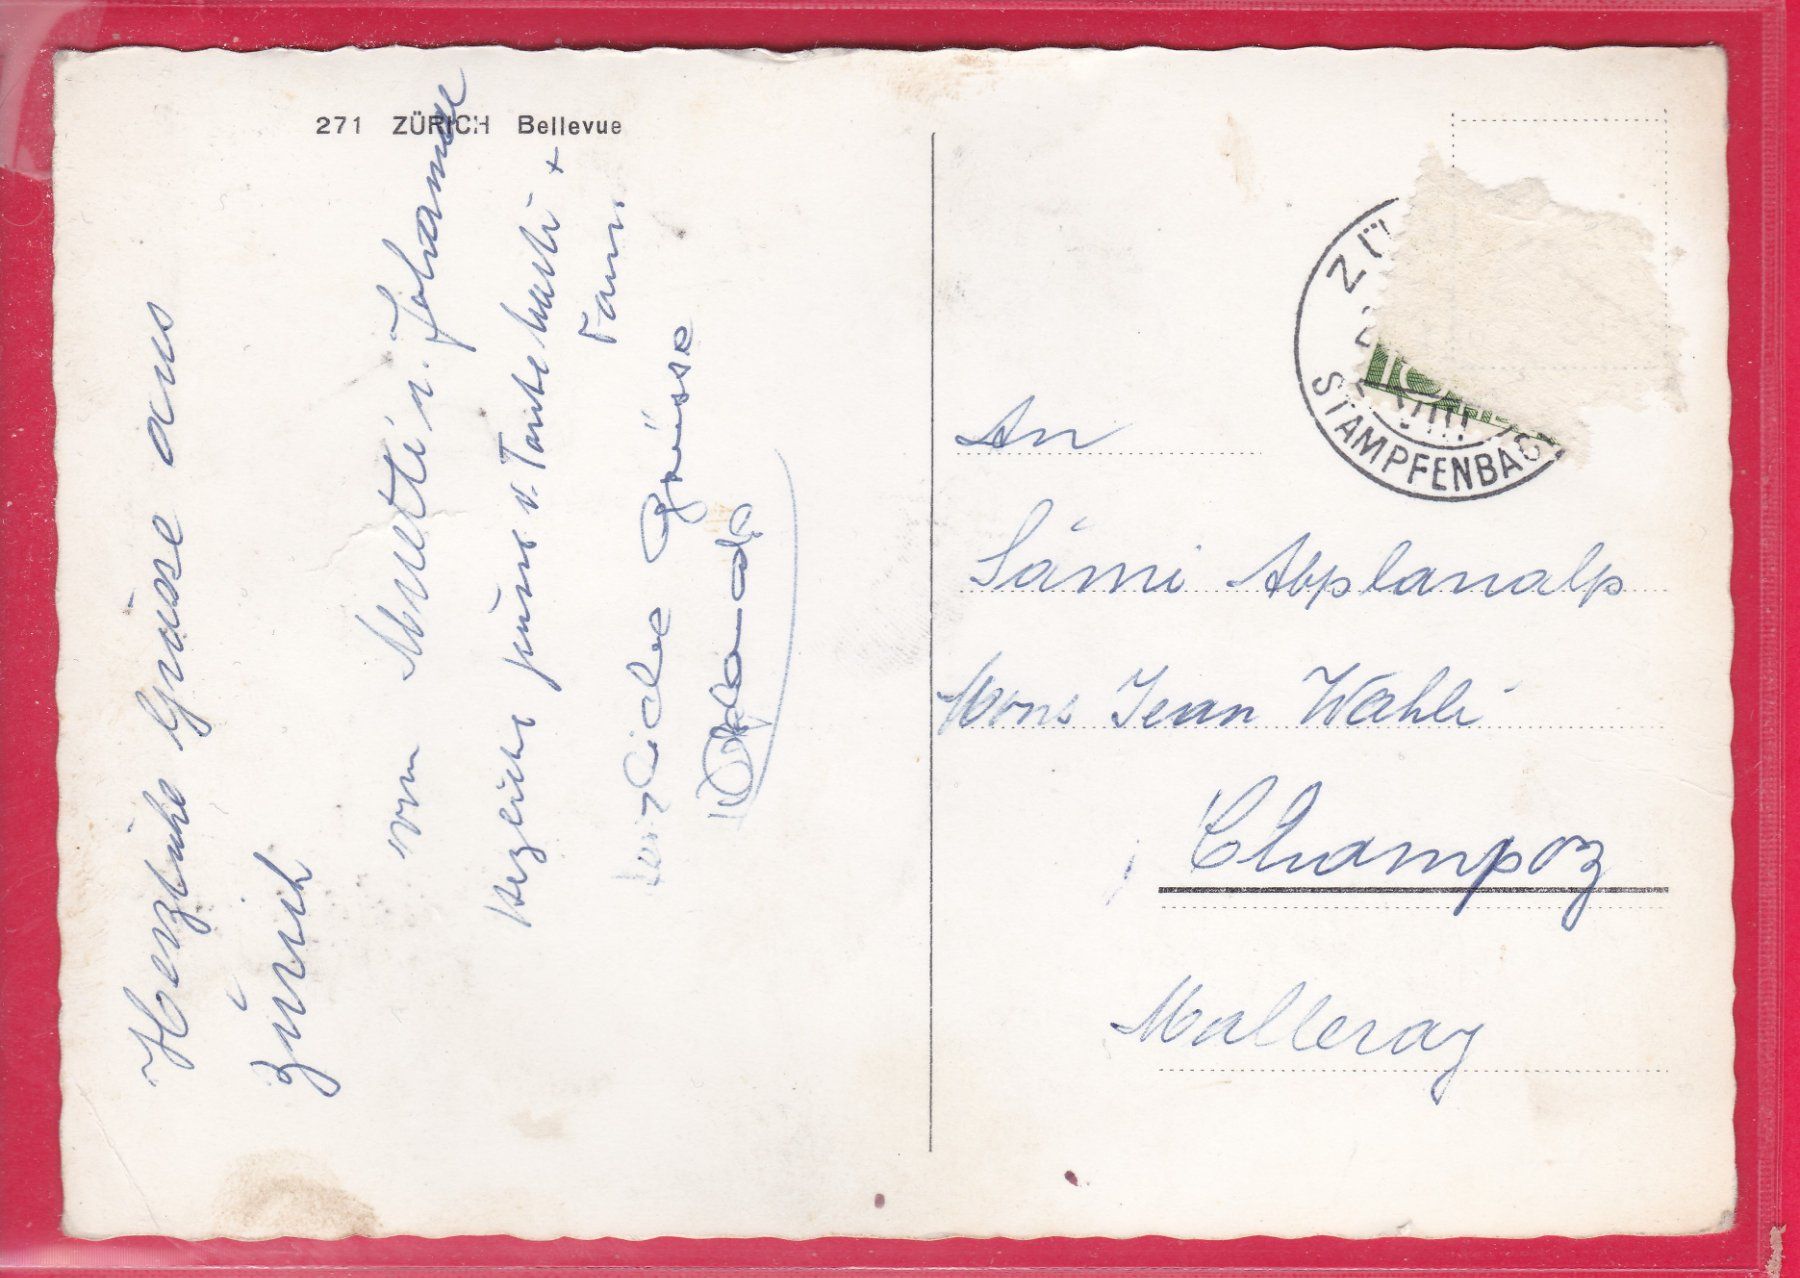 271 ZÜRICH Bellevue
Herzliche Grüsse aus
Zürich
von Muetti u. Johannes
Herzliche v. Tante +
Fam.
herzliche Grüsse
ZÜ
STAMPFENBAC
An
Sämi Abplanalp
Mons Jean Wahli
Champoz
Malleray